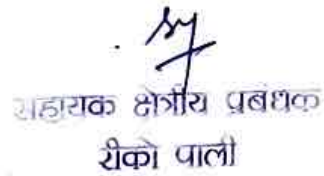 सहायक क्षेत्रीय प्रबंधक
रीको पाली